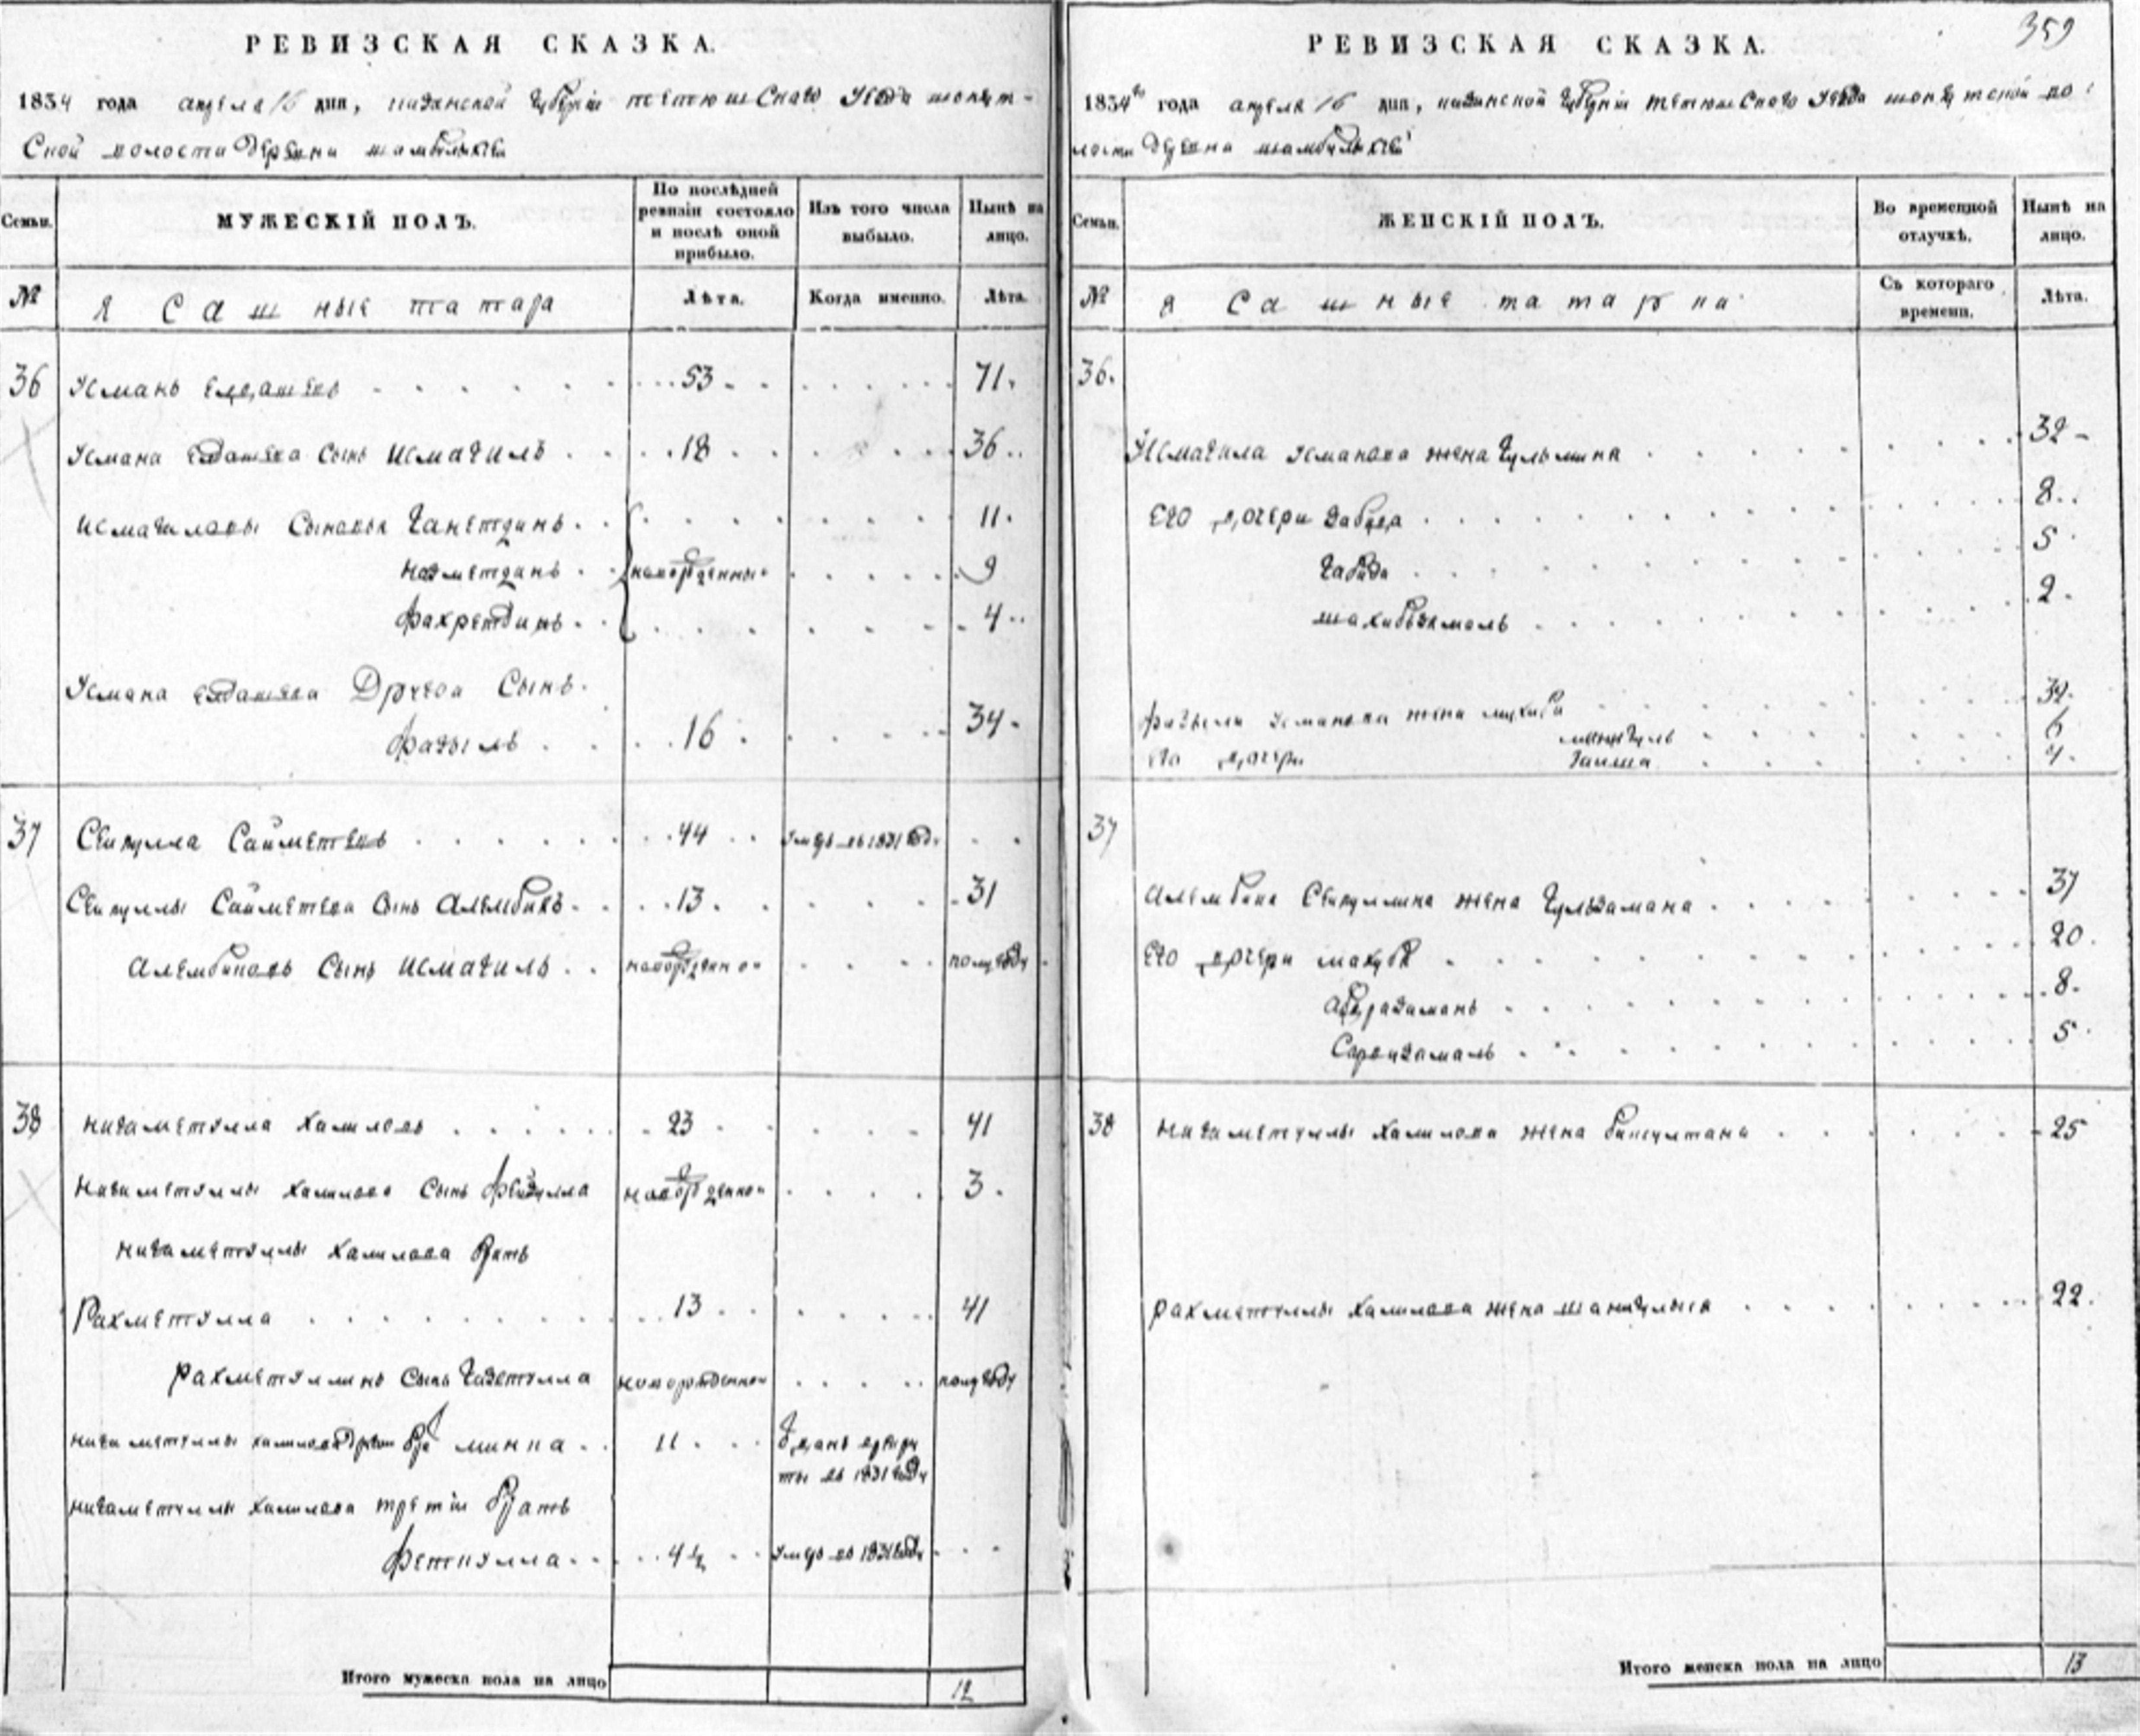 РЕВИЗСКАЯ СКАЗКА.
1834 года апреля 16 дня, казанской губерніи тетюшскаго уезда шонгут-
ской волости деревни шамбулыхчи
Семьи. МУЖЕСКІЙ ПОЛЪ. По послѣдней ревизіи состояло и послѣ оной прибыло. Изъ того числа выбыло. Нынѣ на лицо.
№ Ясашные татара Лѣта. Когда именно. Лѣта.
36 Усманъ Елдашевъ 53 71
Усмана Елдашева сынъ Исмагилъ 18 36
Исмагиловы сыновья Ганетдинъ 11
Назметдинъ новорожденные 9
Фахретдинъ 4
Усмана Елдашева Другой Сынъ
Фазылъ 16 34
37 Сейпулла Сайметевъ 44 умеръ въ 1831 году
Сейпуллы Сайметева сынъ Алембикъ 13 31
Алембиковъ сынъ Исмагилъ новорожденной полугоду
38 Нигаметулла Халиловъ 23 41
Нигаметуллы Халилова сынъ Фейзулла новорожденной 3
Нигаметуллы Халилова братъ
Рахметулла 13 41
Рахметуллинъ сынъ Гизетулла новорожденной полугоду
Нигаметуллы Халилова другой братъ минка 11 отданъ врекру
ты въ 1831 году
Нигаметуллы Халилова третій братъ
Феткулла 4½ умеръ въ 1831 году
Итого мужеска пола на лицо 12
359
РЕВИЗСКАЯ СКАЗКА.
1834го года апреля 16 дня, казанской губерніи тетюшскаго уезда шонгутской во
лости деревна шамбулыхчи
Семьи. ЖЕНСКІЙ ПОЛЪ. Во временной отлучкѣ. Нынѣ на лицо.
№ Ясашные татарки Съ котораго времени. Лѣта.
36.
Исмагила Усманова жена Гульмина 32
Его дочери Забида 8
Габида 5
шахибъзямалъ 2
Фазыла Усманова жена мухиба 32
миннгуль 6
Его дочери
Гайша 4
37
Алембика Сейпуллина жена Гульзамана 37
Его дочери махуба 20
Бадразаманъ 8
Сарвизамалъ 5
38 Нигаметуллы Халилова жена бикултана 25
Рахметуллы Халилова жена шамгулыся 22
Итого женска пола на лицо 13